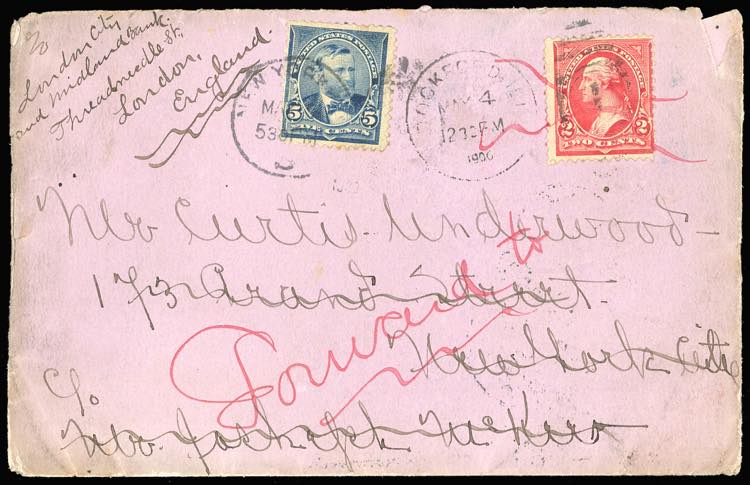 c/o
London City
and Midland Bank.
Threadneedle St.
London,
England.
UNITED STATES POSTAGE
5 5
FIVE CENTS
NEW Y
530
ROCKFORD, ILL
MAY 4
1230PM
1900
UNITED STATES POSTAGE
2 2
TWO CENTS
Mr Curtis Underwood
173 Grand Street.
New York City
Forward to
c/o
Mr Joshaph McKew